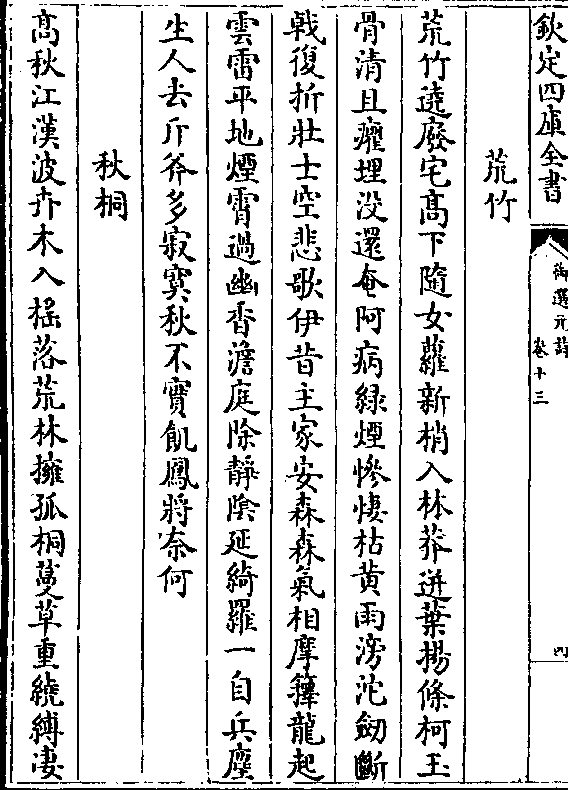 欽定四庫全書
御選元詩
卷十三
四
荒竹
荒竹遶廢宅高下隨女蘿新梢入林莽迸葉揚條柯玉
骨清且癯埋没還奄阿病緑煙慘悽枯黄雨滂沱劒斷
戟復折壯士空悲歌伊昔主家安森森氣相摩籜龍起
雲雷平地煙霄過幽香澹庭除靜陰延綺羅一自兵塵
生人去斤斧多寂寞秋不實飢鳳將奈何
秋桐
高秋江漢波卉木入揺落荒林擁孤桐蔓草重繞縛凄